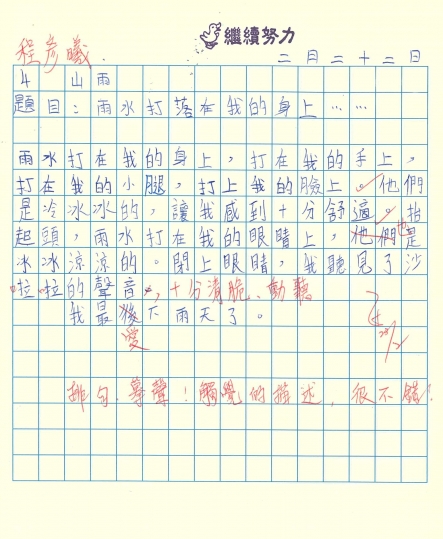 繼續努力
程彥曦.
二月二十二日
4 山雨
題目：雨水打落在我的身上……
雨水打在我的身上，打在我的手上，
打在我的小腿，打上我的臉上。他們
是冷冰冰的，讓我感到十分舒適，抬
起頭，雨水打在我的眼睛上，他們也是
冰冰涼涼的。閉上眼睛，我聽見了沙
啦啦的聲音，十分清脆、動聽
我最後下雨天了。
愛
排句、摹聲！觸覺的描述，很不錯！